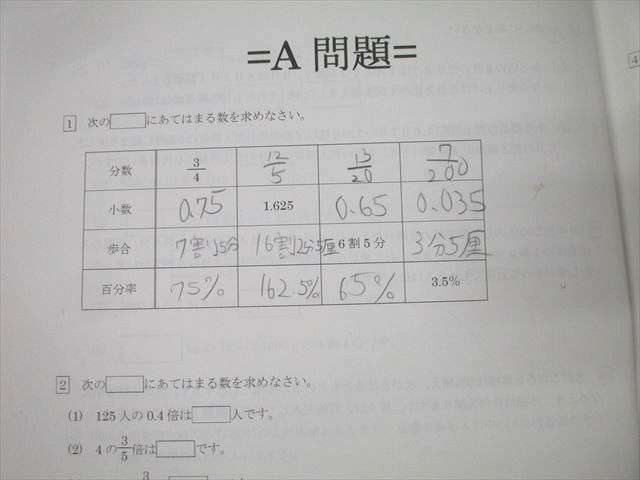 =A 問題=
1 次の□にあてはまる数を求めなさい。
分数 3/4 12/5 13/20 7/200
小数 0.75 1.625 0.65 0.035
歩合 7割5分 16割2分5厘 6割5分 3分5厘
百分率 75% 162.5% 65% 3.5%
2 次の□にあてはまる数を求めなさい。
(1) 125人の0.4倍は□人です。
(2) 4の3/5倍は□です。
4